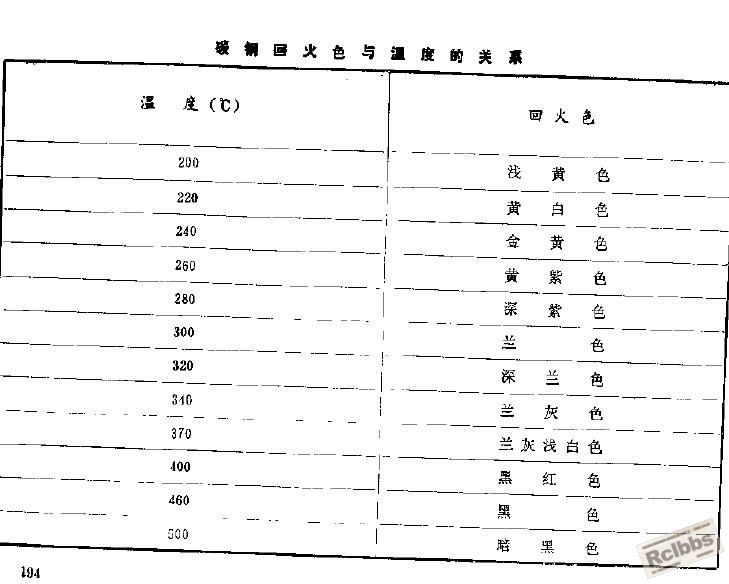 碳钢回火色与温度的关系
温度(℃) 回火色
200 浅黄色
220 黄白色
240 金黄色
260 黄紫色
280 深紫色
300 兰色
320 深兰色
340 兰灰色
370 兰灰浅白色
400 黑红色
460 黑色
500 暗黑色
194
Rclbbs